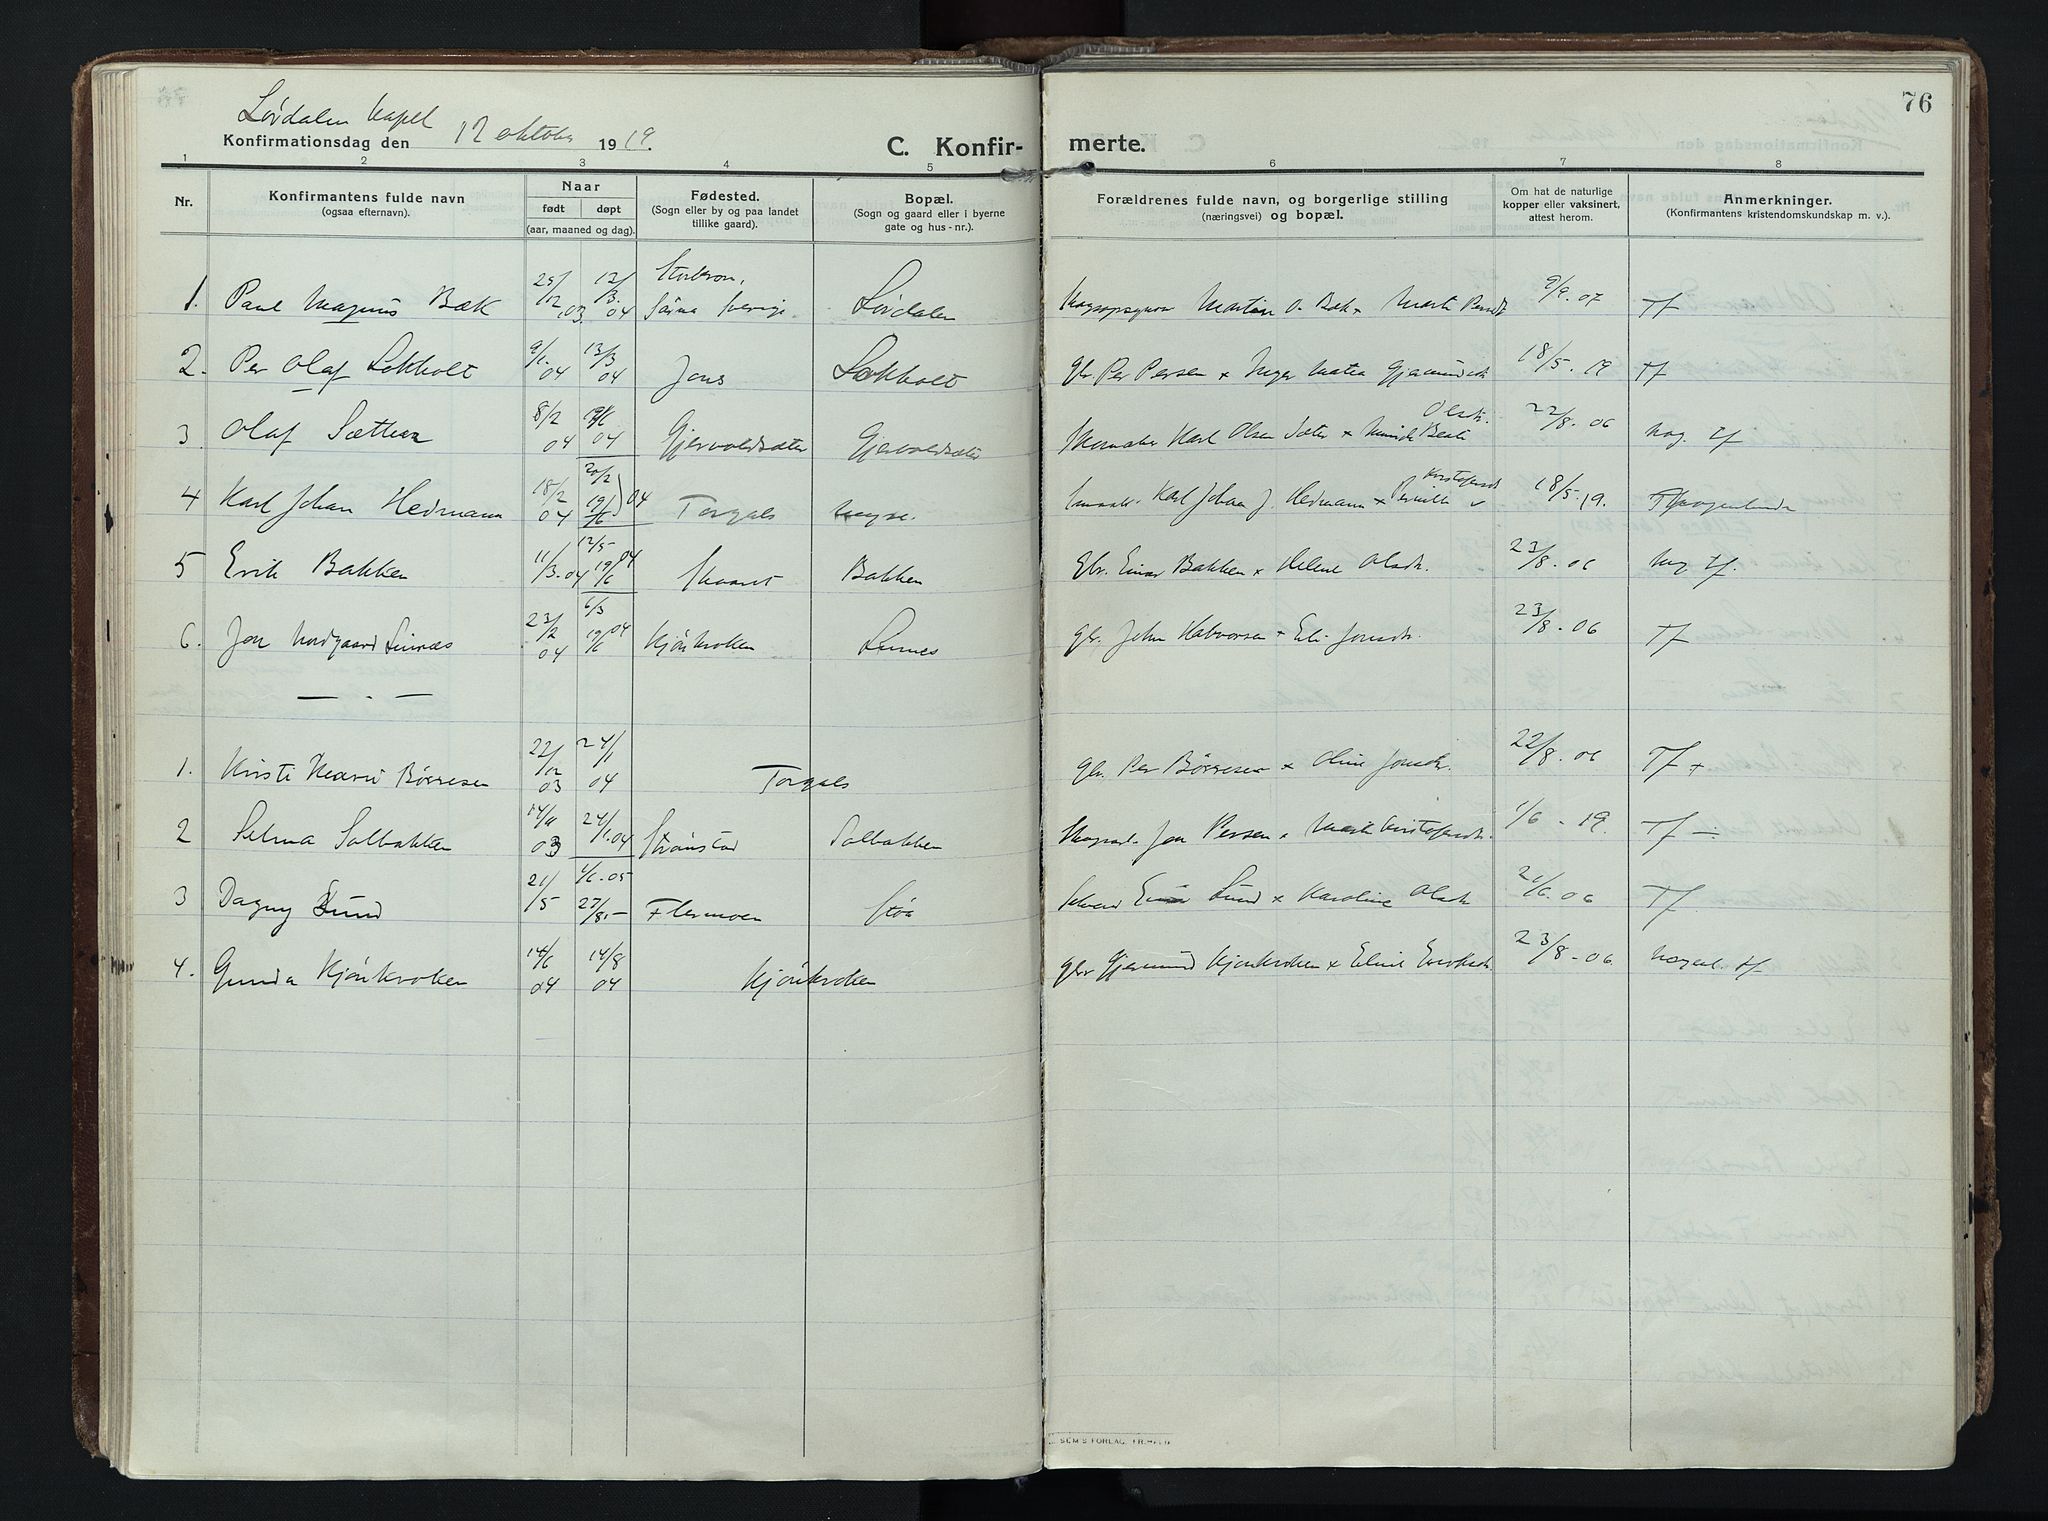 76
Lørdalen kapel
Konfirmationsdag den 12 oktober 1919.
C. Konfir-
merte.
1 2 3 4 5 6 7 8
Nr.
Konfirmantens fulde navn
(ogsaa efternavn).
Naar
født døpt
(aar, maaned og dag).
Fødested.
(Sogn eller by og paa landet
tillike gaard).
Bopæl.
(Sogn og gaard eller i byerne
gate og hus-nr.).
Forældrenes fulde navn, og borgerlige stilling
(næringsvei) og bopæl.
Om hat de naturlige
kopper eller vaksinert,
attest herom.
Anmerkninger.
(Konfirmantens kristendomskundskap m. v.).
1. Paul Magnus Bæk 12/3 04 Särna Sverige Lørdalen Martin O. Bæk × Marte 9/9. 07 Tf
2. Per Olaf Lokholt 9/1. 04 13/3 04 Jons Lokholt gbr. Per Persen × Inger Matea Gjermundsdt 18/5. 19 Tf
3 Olaf Sætter 8/2 04 04 Gjervoldsæter Gjervoldsæter Karl Olsen Sæter × Beate Olsdt. 22/8. 06 Mog. Tf
4 Karl Johan Hedmann 18/2 04 20/2 19/6 04 Torgals Karl Johan J. Hedmann × Pernille Kristofersdt 18/5. 19.
5 Erik Bakken 11/3. 04 12/5 19/6 04 Skaaret Bakken Gbr. Einar Bakken × Helene Olsdt. 23/8. 06 Mog. Tf.
6. Jon Nordgaard Linnes 23/2 04 6/3 19/6 04 Kjönkroken Linnes gbr. John Halvorsen × Eli Jonsdt. 23/8. 06 Tf
— . —
1. Kirsti Marie Børresen 22/12 03 24/1 04 Torgals gbr. Per Børresen × Oline Jonsdt. 22/8. 06 Tf +
2 Selma Solbakken 14/11 03 24/1. 04 Strönstad Solbakken Jon Persen × Marte Kristofersdt. 1/6 - 19. Tf
3 Dagny Lund 21/5 27/8 Flermoen Støa Einar Lund × Karoline Olsdt 21/6. 06 Tf.
4. Gunda Kjönkroken 14/6 04 14/8 04 Kjönkroken gbr Gjermund Kjönkroken × Eline Eriksdt. 23/8 - 06. Tf
SEM'S FORLAG, FR.HALD